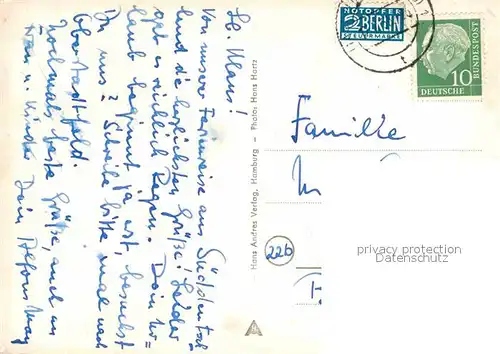 Lb. Klaus!
Von unserer Ferienreise aus Süddeutsch
land die herzlichsten Grüße! Leider
gibt es reichlich Regen. Dein Ur=
laub beginnt ja erst, besuchst
Du uns? Schreibe bitte mal nach
Oberstadtfeld.
Nochmals beste Grüße, auch an
Frau u. Kinder Dein Alfons
Hans Andres Verlag, Hamburg - Photo: Hans Hartz
NOTOPFER
2 BERLIN
STEUERMARKE
10
DEUTSCHE
BUNDESPOST
Familie
22b
privacy protection
Datenschutz